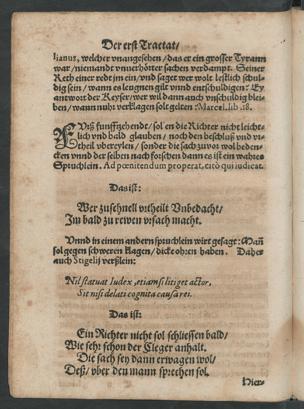 Der erst Tractat/
lianus, welcher vnangesehen/das er ein grosser Tyrann
war/niemandt vnuerhörter sachen verdampt. Seiner
Reth einer redt jm ein/vnd saget wer wolt lestlich schul-
dig sein/wann es leugnen gilt vnnd entschuldigen? Ey
antwort der Keyser/wer wil dann auch vnschuldig blei-
ben/wann nuhr verklagen sol gelten? Marcel. lib. 18.
Vrß funffzehende/sol en die Richter nicht leichte-
lich vnd bald glauben/noch den beschluß vnd vr-
theil vbereylen/sonder die sach zuuor wol beden-
cken vnnd der selben nach forschen dann es ist ein wahres
Spruchlein. Ad pœnitendum properat, citò qui iudicat.
Das ist:
Wer zu schnell vrtheilt Vnbedacht/
Im bald zu rewen vrsach macht.
Vnnd in einem andern spruchlein wirt gesagt: Man
sol gegen schweren klagen/dicke ohren haben. Daher
auch Stigelij verßlein:
Nil statuat Iudex, etiam si litiget actor,
Sit nisi delati cognita causa rei.
Das ist:
Ein Richter nicht sol schliessen bald/
Wie sehr schon der Cleger anhalt.
Die sach sey dann erwagen wol/
Deß/vber den mann sprechen sol.
Hier-